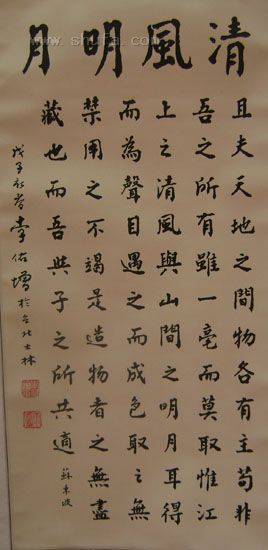 清風明月
且夫天地之間物各有主苟非
吾之所有雖一毫而莫取惟江
上之清風與山間之明月耳得
而為聲目遇之而成色取之無
禁用之不竭是造物者之無盡
藏也而吾與子之所共適 蘇東坡
戊子 李佑增於台北士林